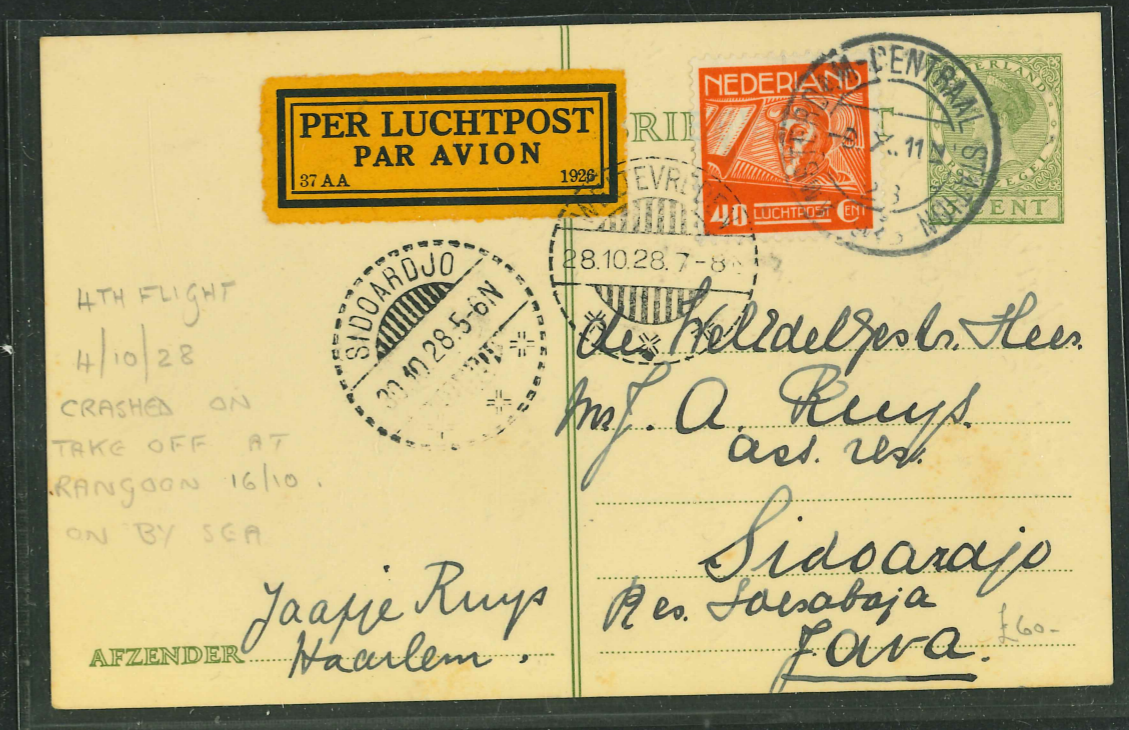 PER LUCHTPOST
PAR AVION
37 AA 1926
NEDERLAND
40 LUCHTPOST CENT
CENTRAAL STATION
NEDERLAND
CENT
28.10.28.7-8
SIDOARDJO
30.10.28.5-6N
4TH FLIGHT
4/10/28
CRASHED ON
TAKE OFF AT
RANGOON 16/10.
ON BY SEA
de WelEdelGestr. Heer
Mr J. A. Ruys.
ass. res.
Sidoardjo
Res. Soerabaja
Java.
£60-
Jaapje Ruys
AFZENDER Haarlem.